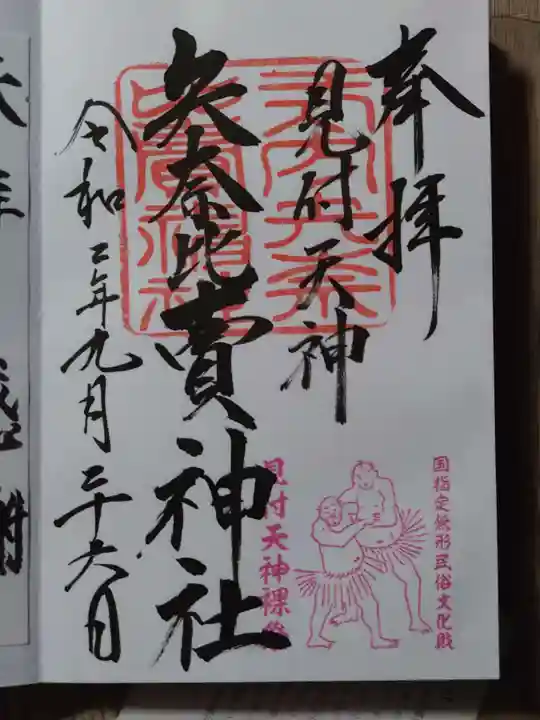 奉拝
国指定無形民俗文化財
見付天神
矢奈比賣神社
見付天神裸祭
令和二年九月二十六日